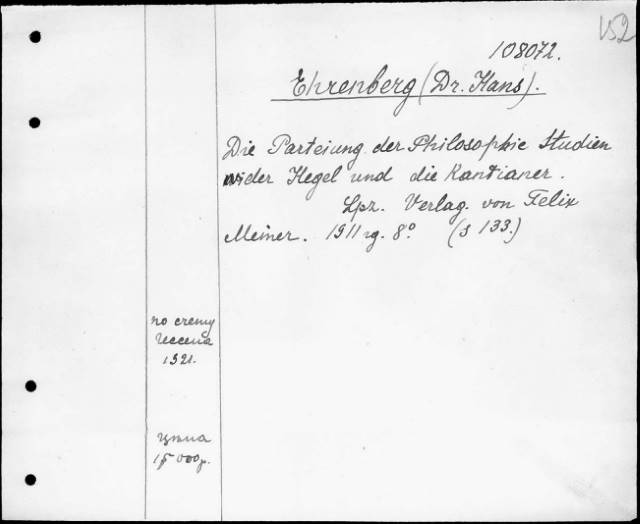 152
108072.
Ehrenberg (Dr. Hans).
Die Parteiung der Philosophie Studien
wider Hegel und die Kantianer.
Lpz. Verlag von Felix
Meiner. 1911 г. 8° (s 133.)
по счету
Гессена
1921.
цена
15 000 р.